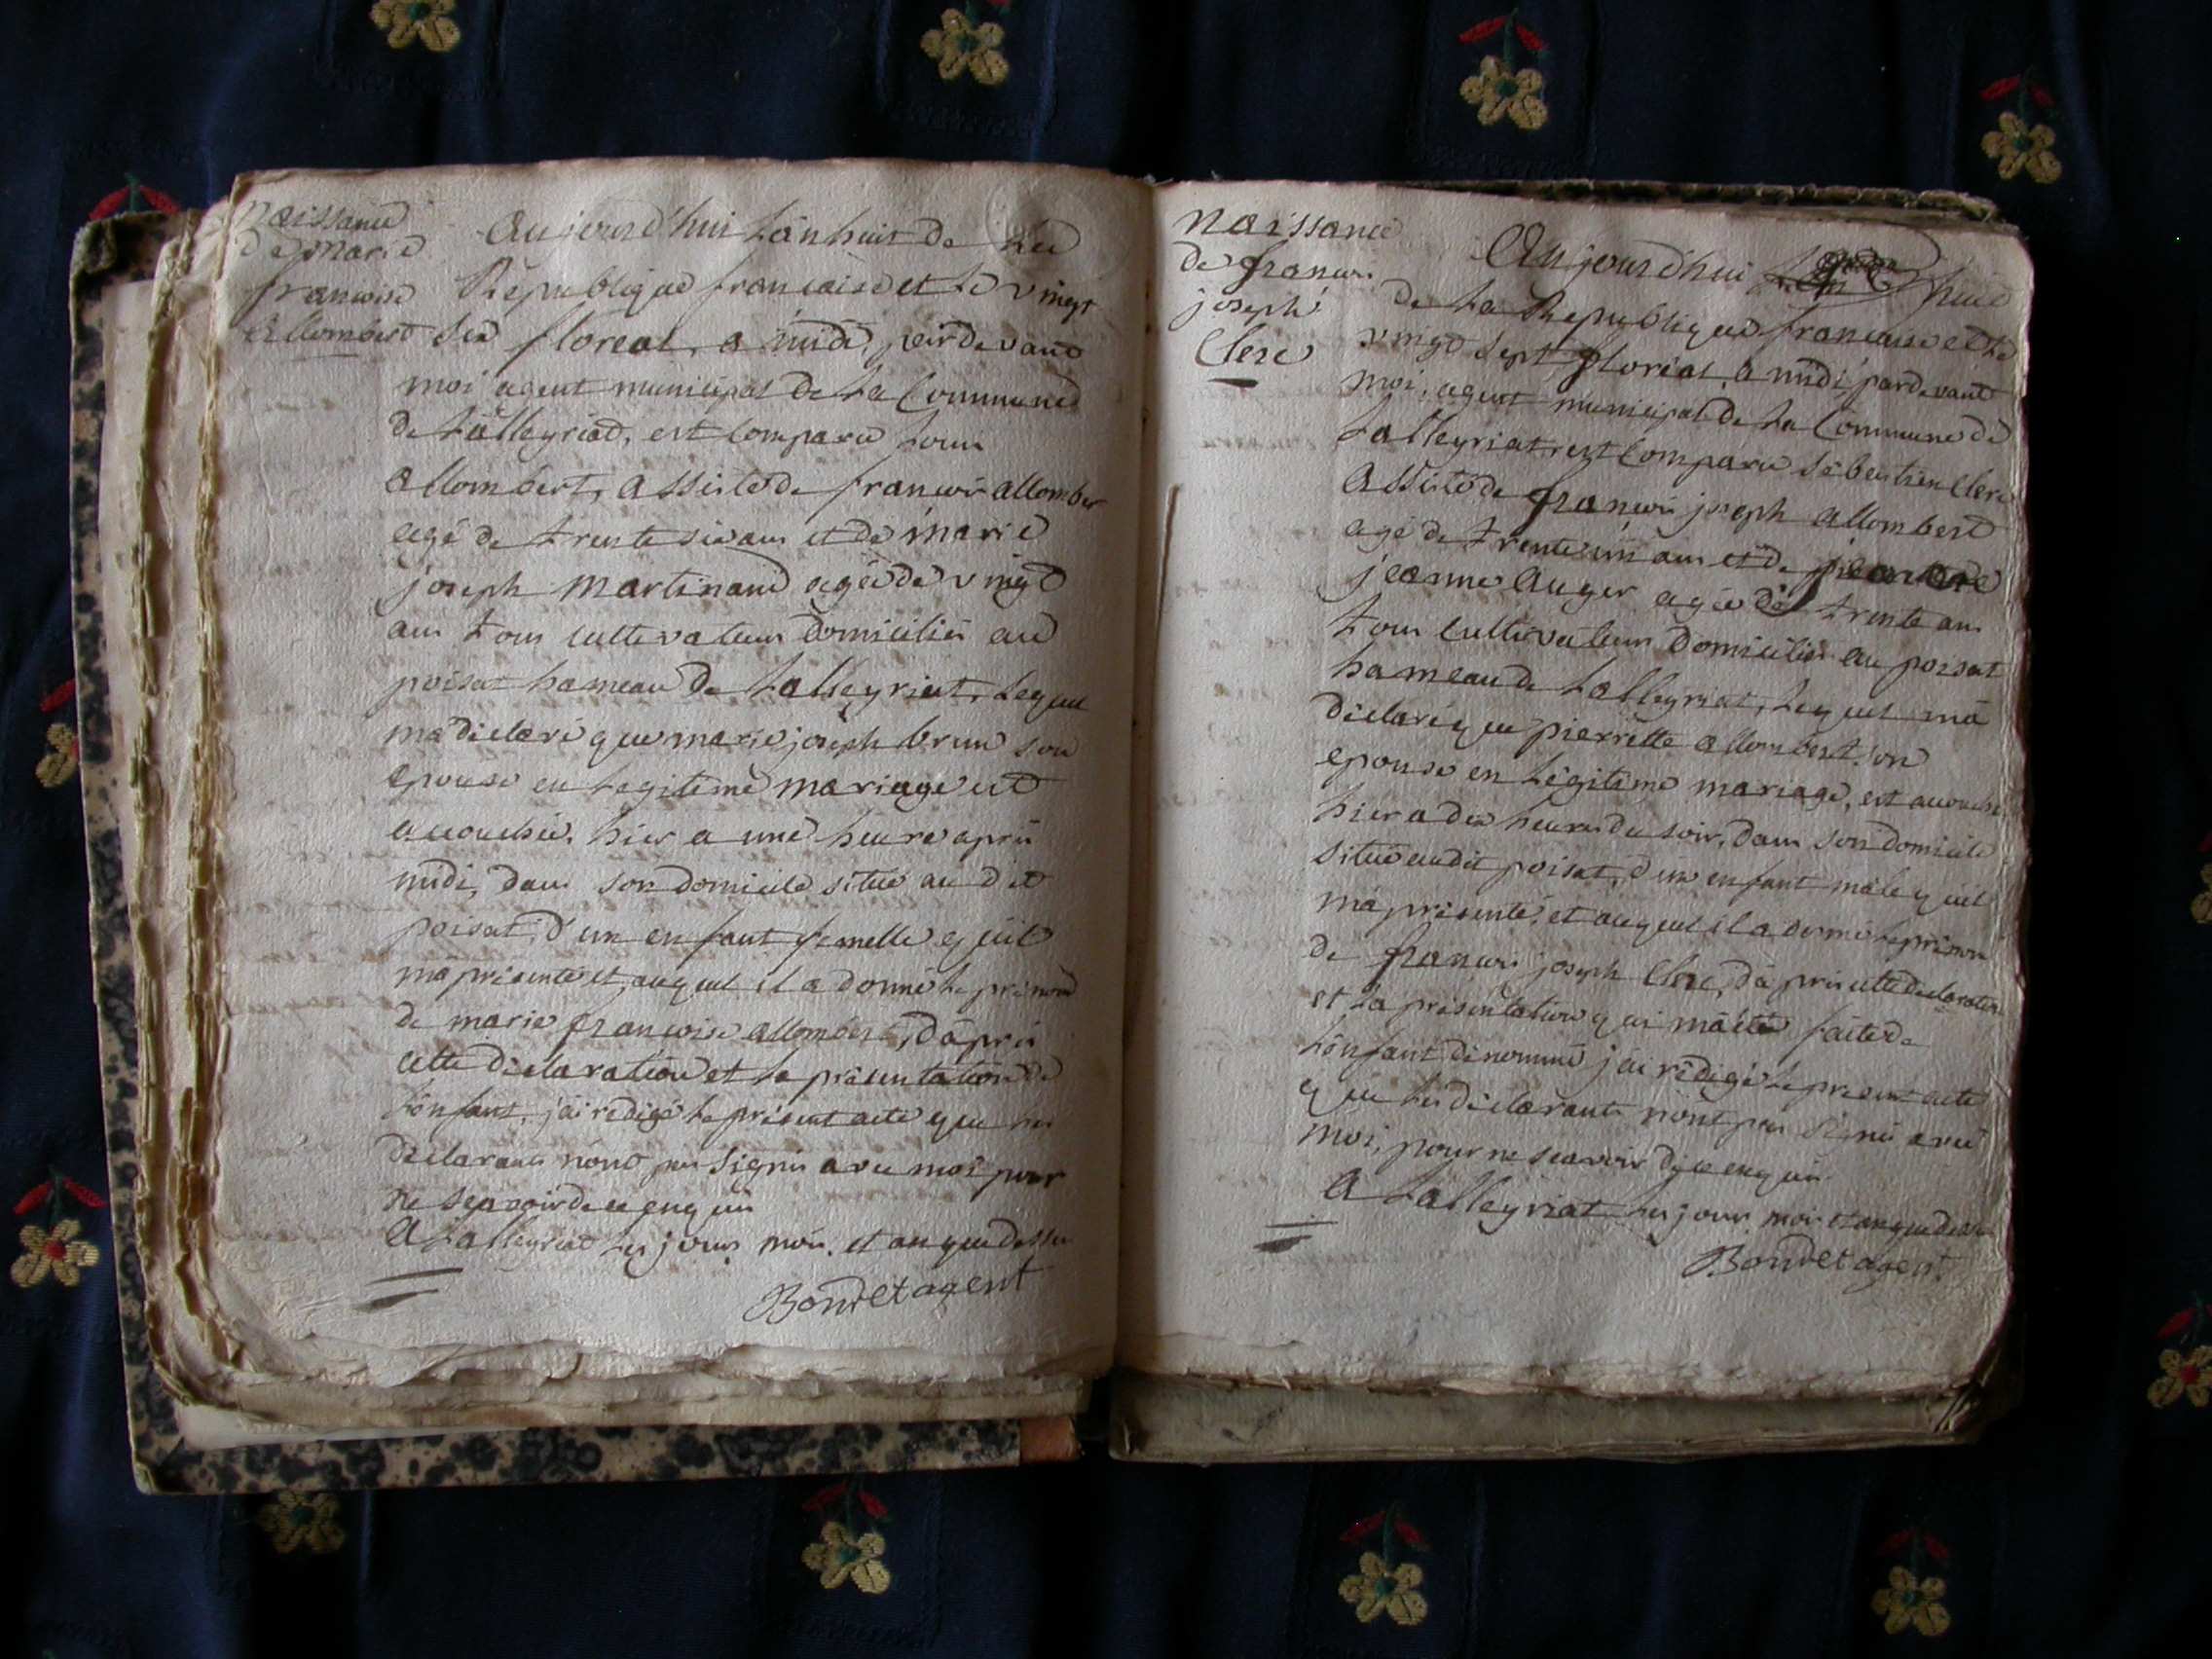 naissance
de marie
francoise
allombert
aujourd'hui l'an huit de la
Republique francaise et le vingt
six floreal, a midi, pardevant
moi agent municipal de la Commune
de Lalleyriat, est comparu Louis
allombert, assisté de francois allombert
agé de trente six ans et de marie
joseph martinand agée de vingt
ans tous cultivateurs domiciliés au
poisat hameau de Lalleyriat, lequel
m'a déclaré que marie joseph brun son
epouse en legitime mariage est
accouchée, hier a une heure après
midi, dans son domicile situé au dit
poisat, d'un enfant femelle qu'il
m'a présenté et auquel il a donné le prénom
de marie francoise allombert, d'après
cette declaration et la présentation de
l'enfant, j'ai rédigé le présent acte que les
déclarants n'ont pas signés avec moi pour
ne scavoir de ce enquis
A Lalleyriat les jours mois, et an que dessus
Bondet agent
naissance
de francois
joseph
Clerc
Aujourd'hui huit
de la Republique francaise et le
vingt sept floréal, a midi, pardevant
moi, agent municipal de la Commune de
Lalleyriat, est comparu sébastien Clerc
assisté de francois joseph allombert
agé de trente un ans et de
jeanne auger agée de trente ans
tous cultivateurs domiciliés au poisat
hameau de Lalleyriat, lequel m'a
déclaré que pierrette allombert son
epouse en légitime mariage, est accouchée
hier a dix heures du soir, dans son domicile
situé audit poisat, d'un enfant mâle qu'il
m'a présenté, et auquel il a donné le prénom
de francois joseph Clerc, d'après cette declaration
et la présentation qui m'a été faite de
l'enfant dénommé j'ai rédigé le present acte
que les déclarants n'ont pas signés avec
moi, pour ne scavoir de ce enquis
A Lalleyriat les jours mois et an que dessus
Bondet agent